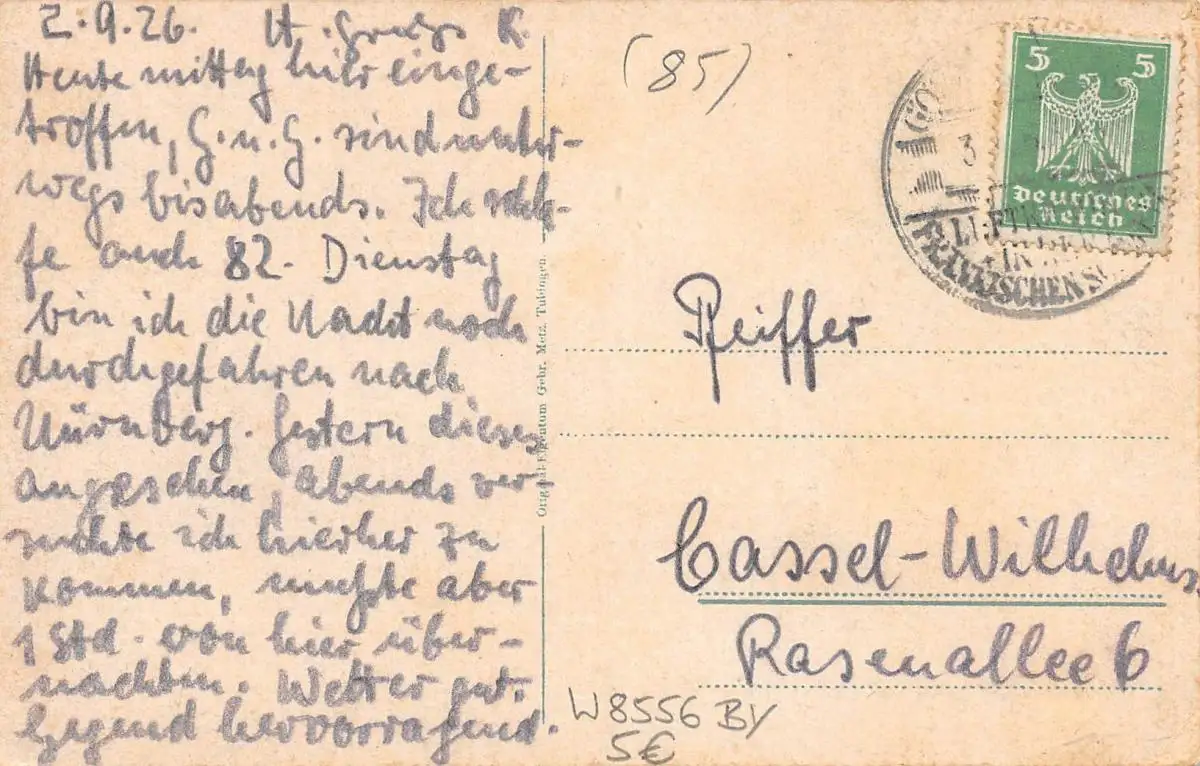 2.9.26.
Heute mittag hier einge-
troffen, G. u. G. sind unter-
wegs bis abends. Ich schla-
fe auch 82. Dienstag
bin ich die Nacht noch
durchgefahren nach
Nürnberg. Gestern dieses
angesehen, abends ver-
suchte ich hierher zu
kommen, mußte aber
1 Std. von hier über-
nachten. Wetter gut.
Gegend hervorragend.
Original-Eigentum Gebr. Metz, Tübingen.
(85)
5 5
Deutsches
Reich
3
LUFTKURORT
IN DER
FRÄNKISCHEN
Pfeiffer
Cassel-Wilhelms
Rasenallee 6
W8556 BY
5€